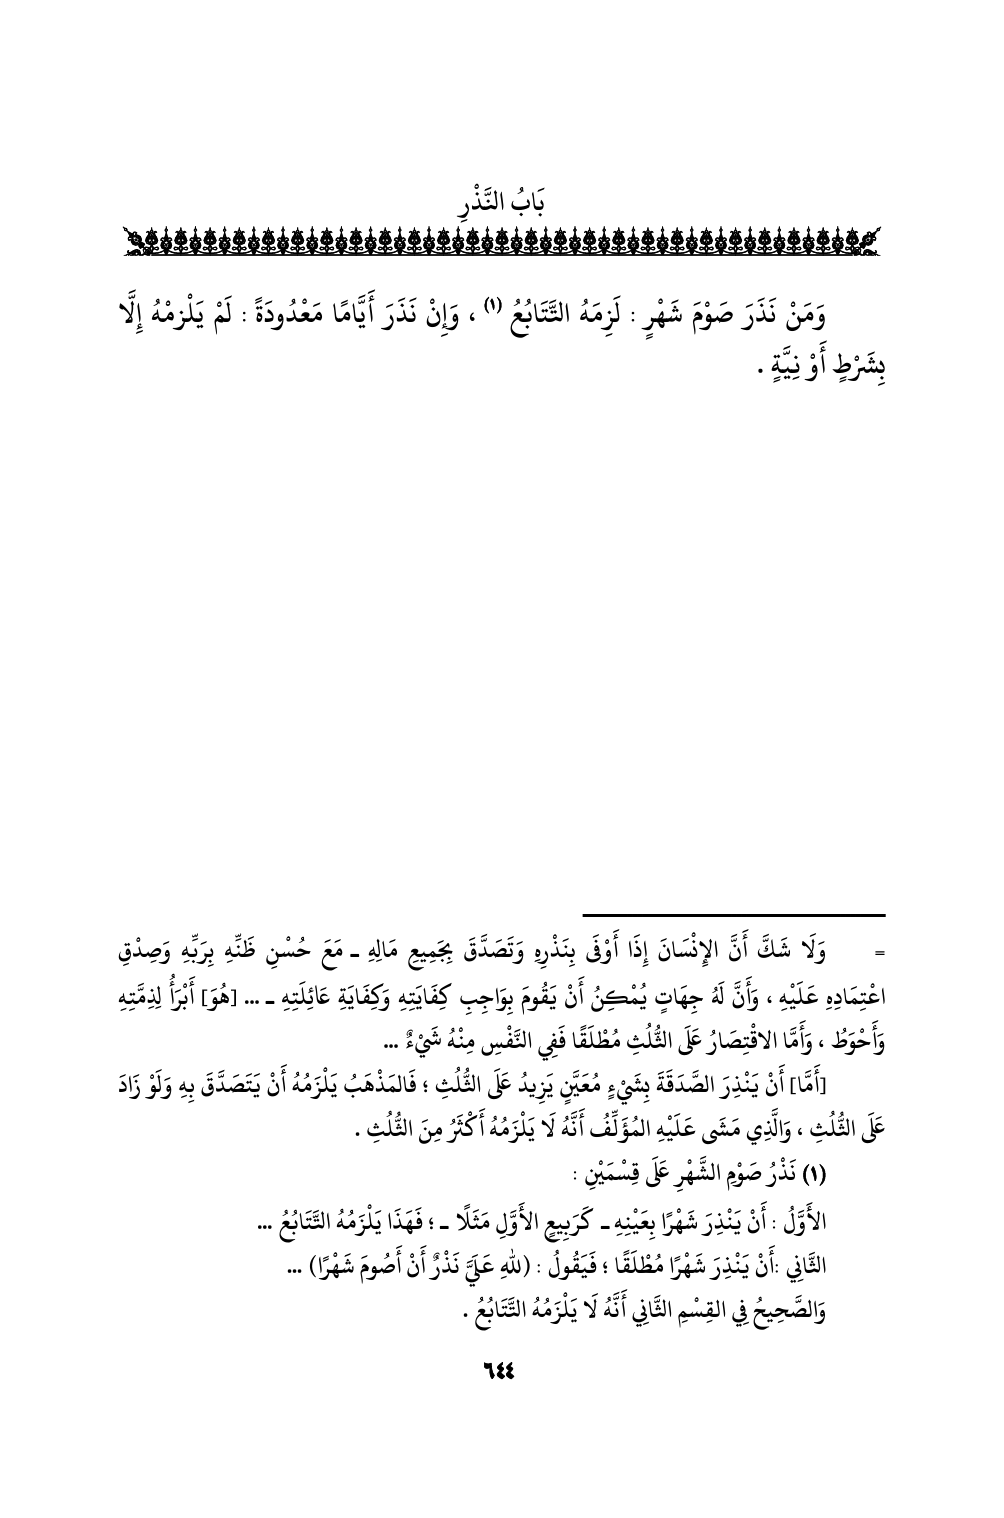 بَابُ النَّذْرِ
وَمَنْ نَذَرَ صَوْمَ شَهْرٍ : لَزِمَهُ التَّتَابُعُ (١) ، وَإِنْ نَذَرَ أَيَّامًا مَعْدُودَةً : لَمْ يَلْزمْهُ إِلَّا
بِشَرْطٍ أَوْ نِيَّةٍ .
= وَلَا شَكَّ أَنَّ الإِنْسَانَ إِذَا أَوْفَى بِنَذْرِهِ وَتَصَدَّقَ بِجَمِيعِ مَالِهِ ـ مَعَ حُسْنِ ظَنِّهِ بِرَبِّهِ وَصِدْقِ
اعْتِمَادِهِ عَلَيْهِ ، وَأَنَّ لَهُ جِهَاتٍ يُمْكِنُ أَنْ يَقُومَ بِوَاجِبِ كِفَايَتِهِ وَكِفَايَةِ عَائِلَتِهِ ـ ... [هُوَ] أَبْرَأُ لِذِمَّتِهِ
وَأَحْوَطُ ، وَأَمَّا الاقْتِصَارُ عَلَى الثُّلُثِ مُطْلَقًا فَفِي النَّفْسِ مِنْهُ شَيْءٌ ...
[أَمَّا] أَنْ يَنْذِرَ الصَّدَقَةَ بِشَيْءٍ مُعَيَّنٍ يَزِيدُ عَلَى الثُّلُثِ ؛ فَالمَذْهَبُ يَلْزَمُهُ أَنْ يَتَصَدَّقَ بِهِ وَلَوْ زَادَ
عَلَى الثُّلُثِ ، وَالَّذِي مَشَى عَلَيْهِ المُؤَلِّفُ أَنَّهُ لَا يَلْزَمُهُ أَكْثَرُ مِنَ الثُّلُثِ .
(١) نَذْرُ صَوْمِ الشَّهْرِ عَلَى قِسْمَيْنِ :
الأَوَّلُ : أَنْ يَنْذِرَ شَهْرًا بِعَيْنِهِ ـ كَرَبِيعٍ الأَوَّلِ مَثَلًا ـ ؛ فَهَذَا يَلْزَمُهُ التَّتَابُعُ ...
الثَّانِي :أَنْ يَنْذِرَ شَهْرًا مُطْلَقًا ؛ فَيَقُولُ : (للهِ عَلَيَّ نَذْرٌ أَنْ أَصُومَ شَهْرًا) ...
وَالصَّحِيحُ فِي القِسْمِ الثَّانِي أَنَّهُ لَا يَلْزَمُهُ التَّتَابُعُ .
٦٤٤